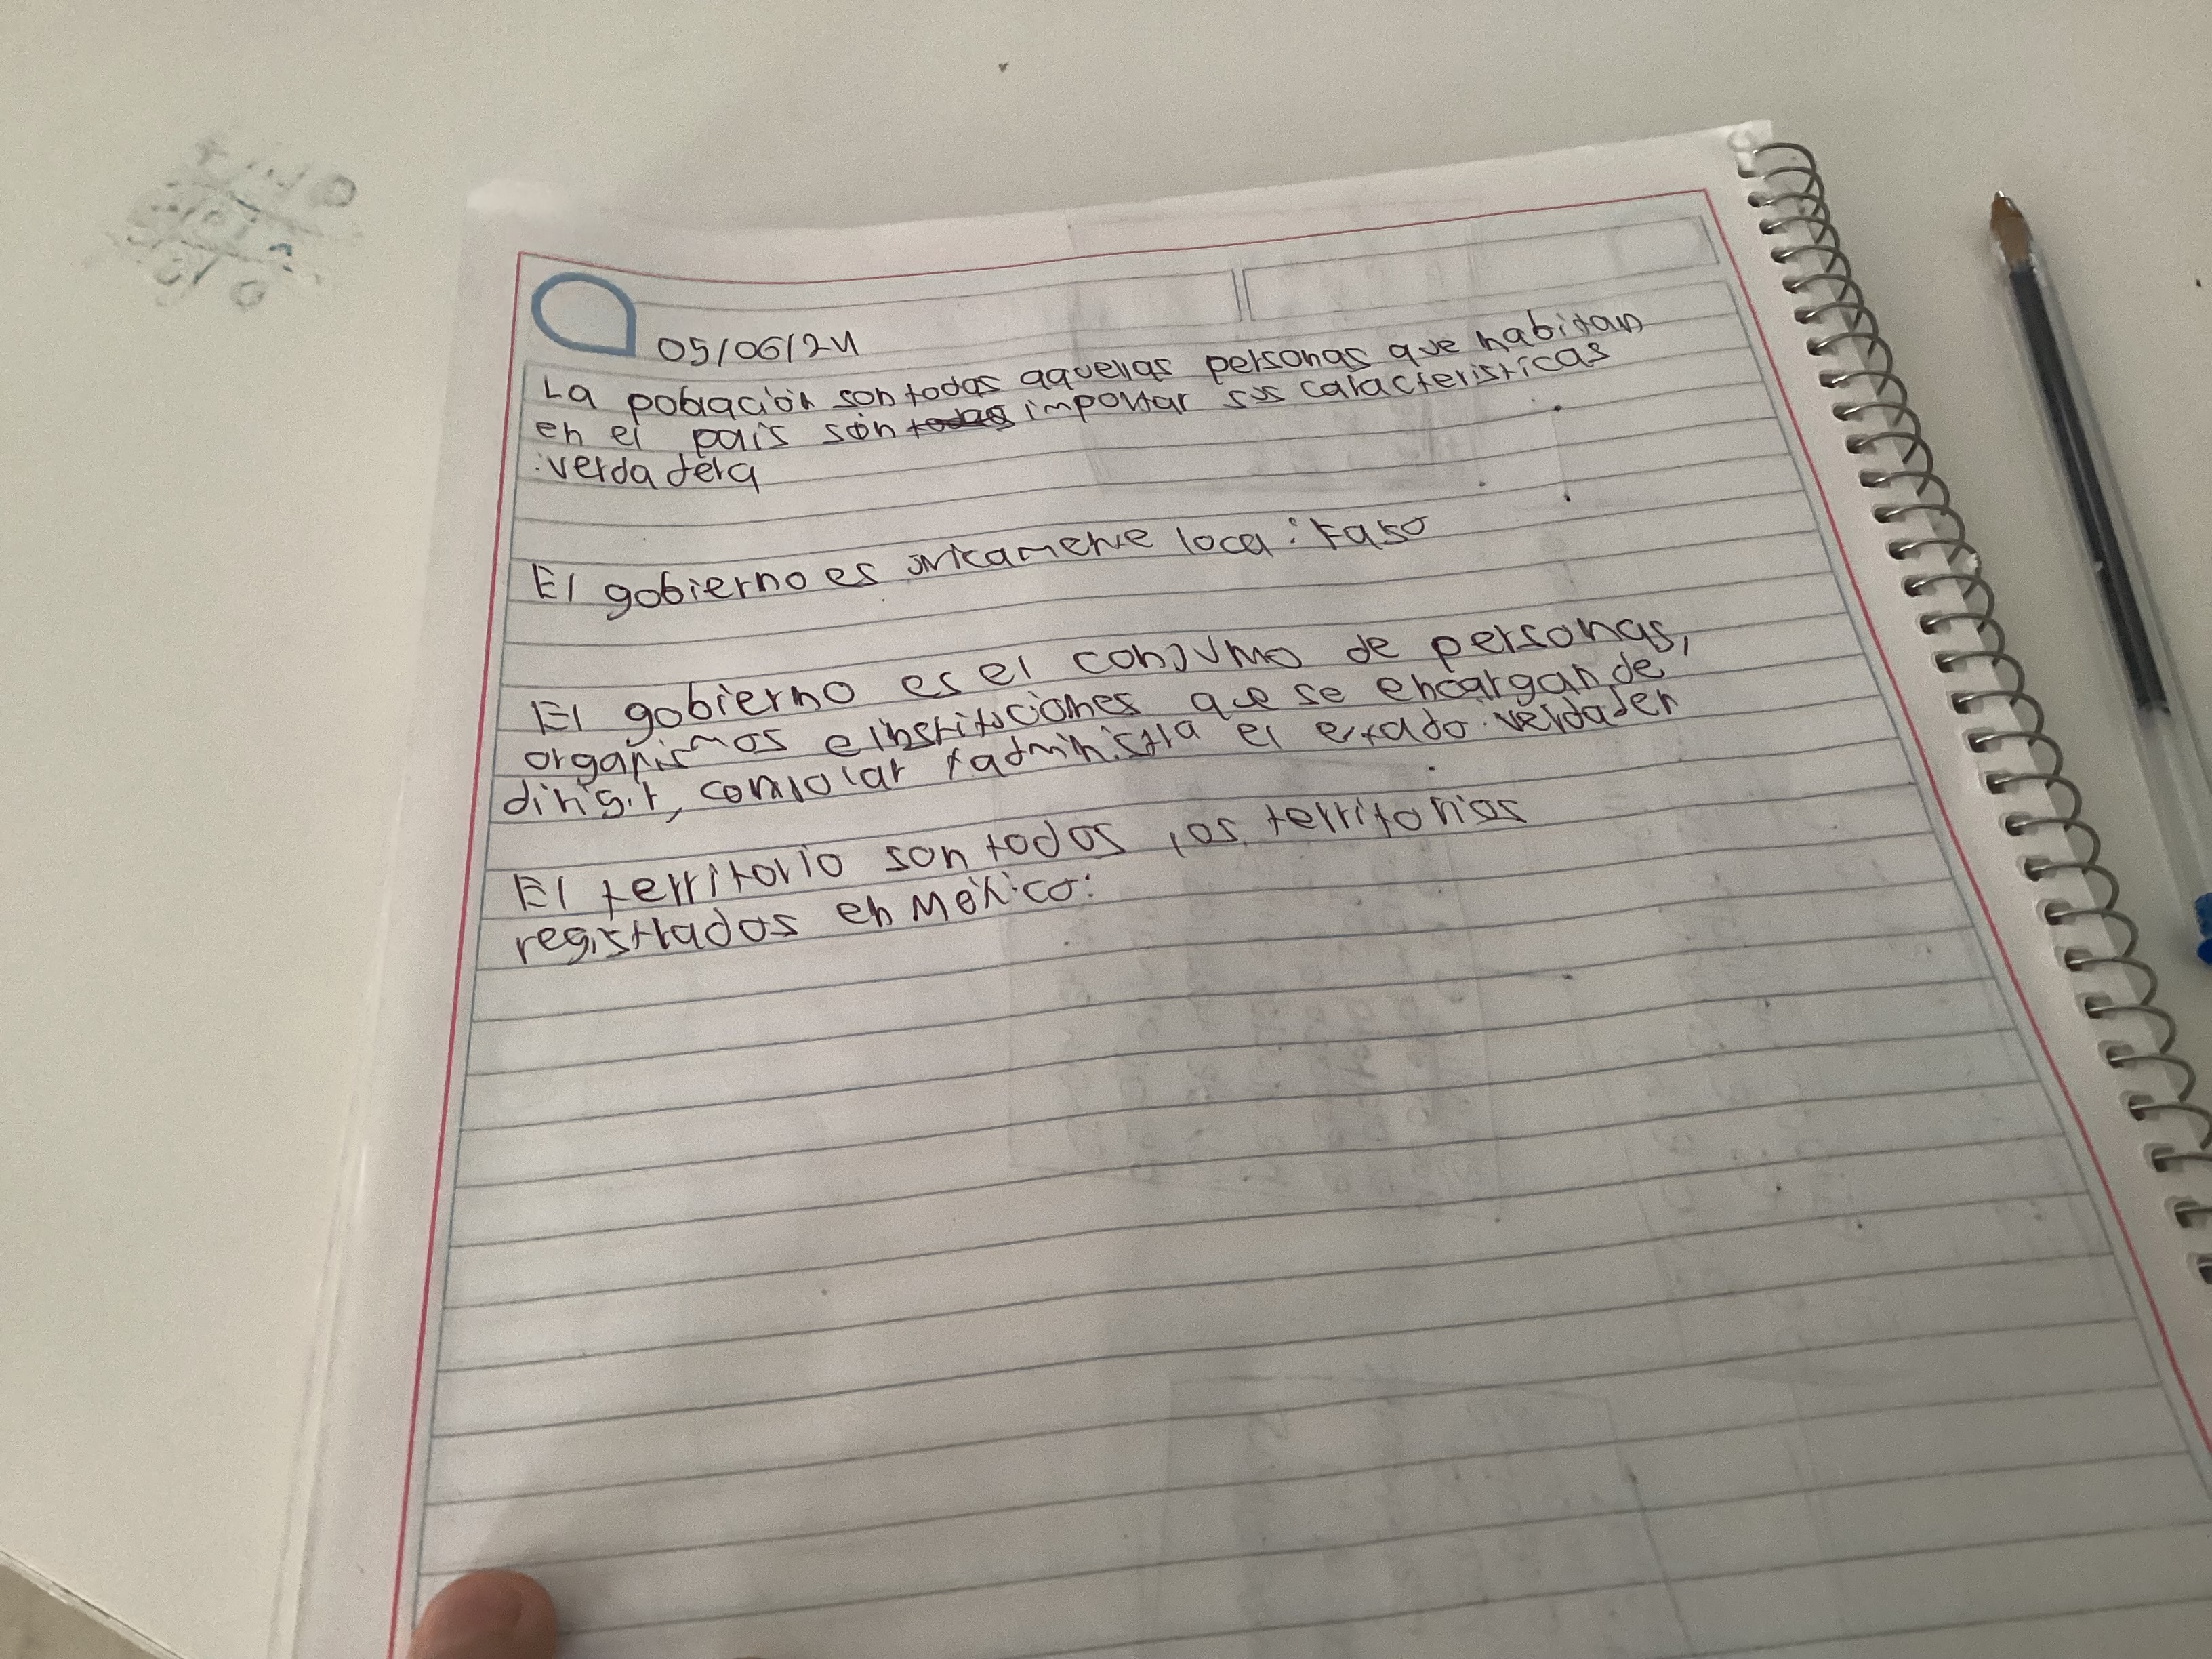 05/06/24
La población son todas aquellas personas que habitan
en el país sin todas importar sus características
:verdadera
El gobierno es unicamente local: Falso
El gobierno es el conjunto de personas,
organismos e instituciones que se encargan de
dirigir, controlar y administra el estado. verdader
El territorio son todos los territorios
registrados en México: